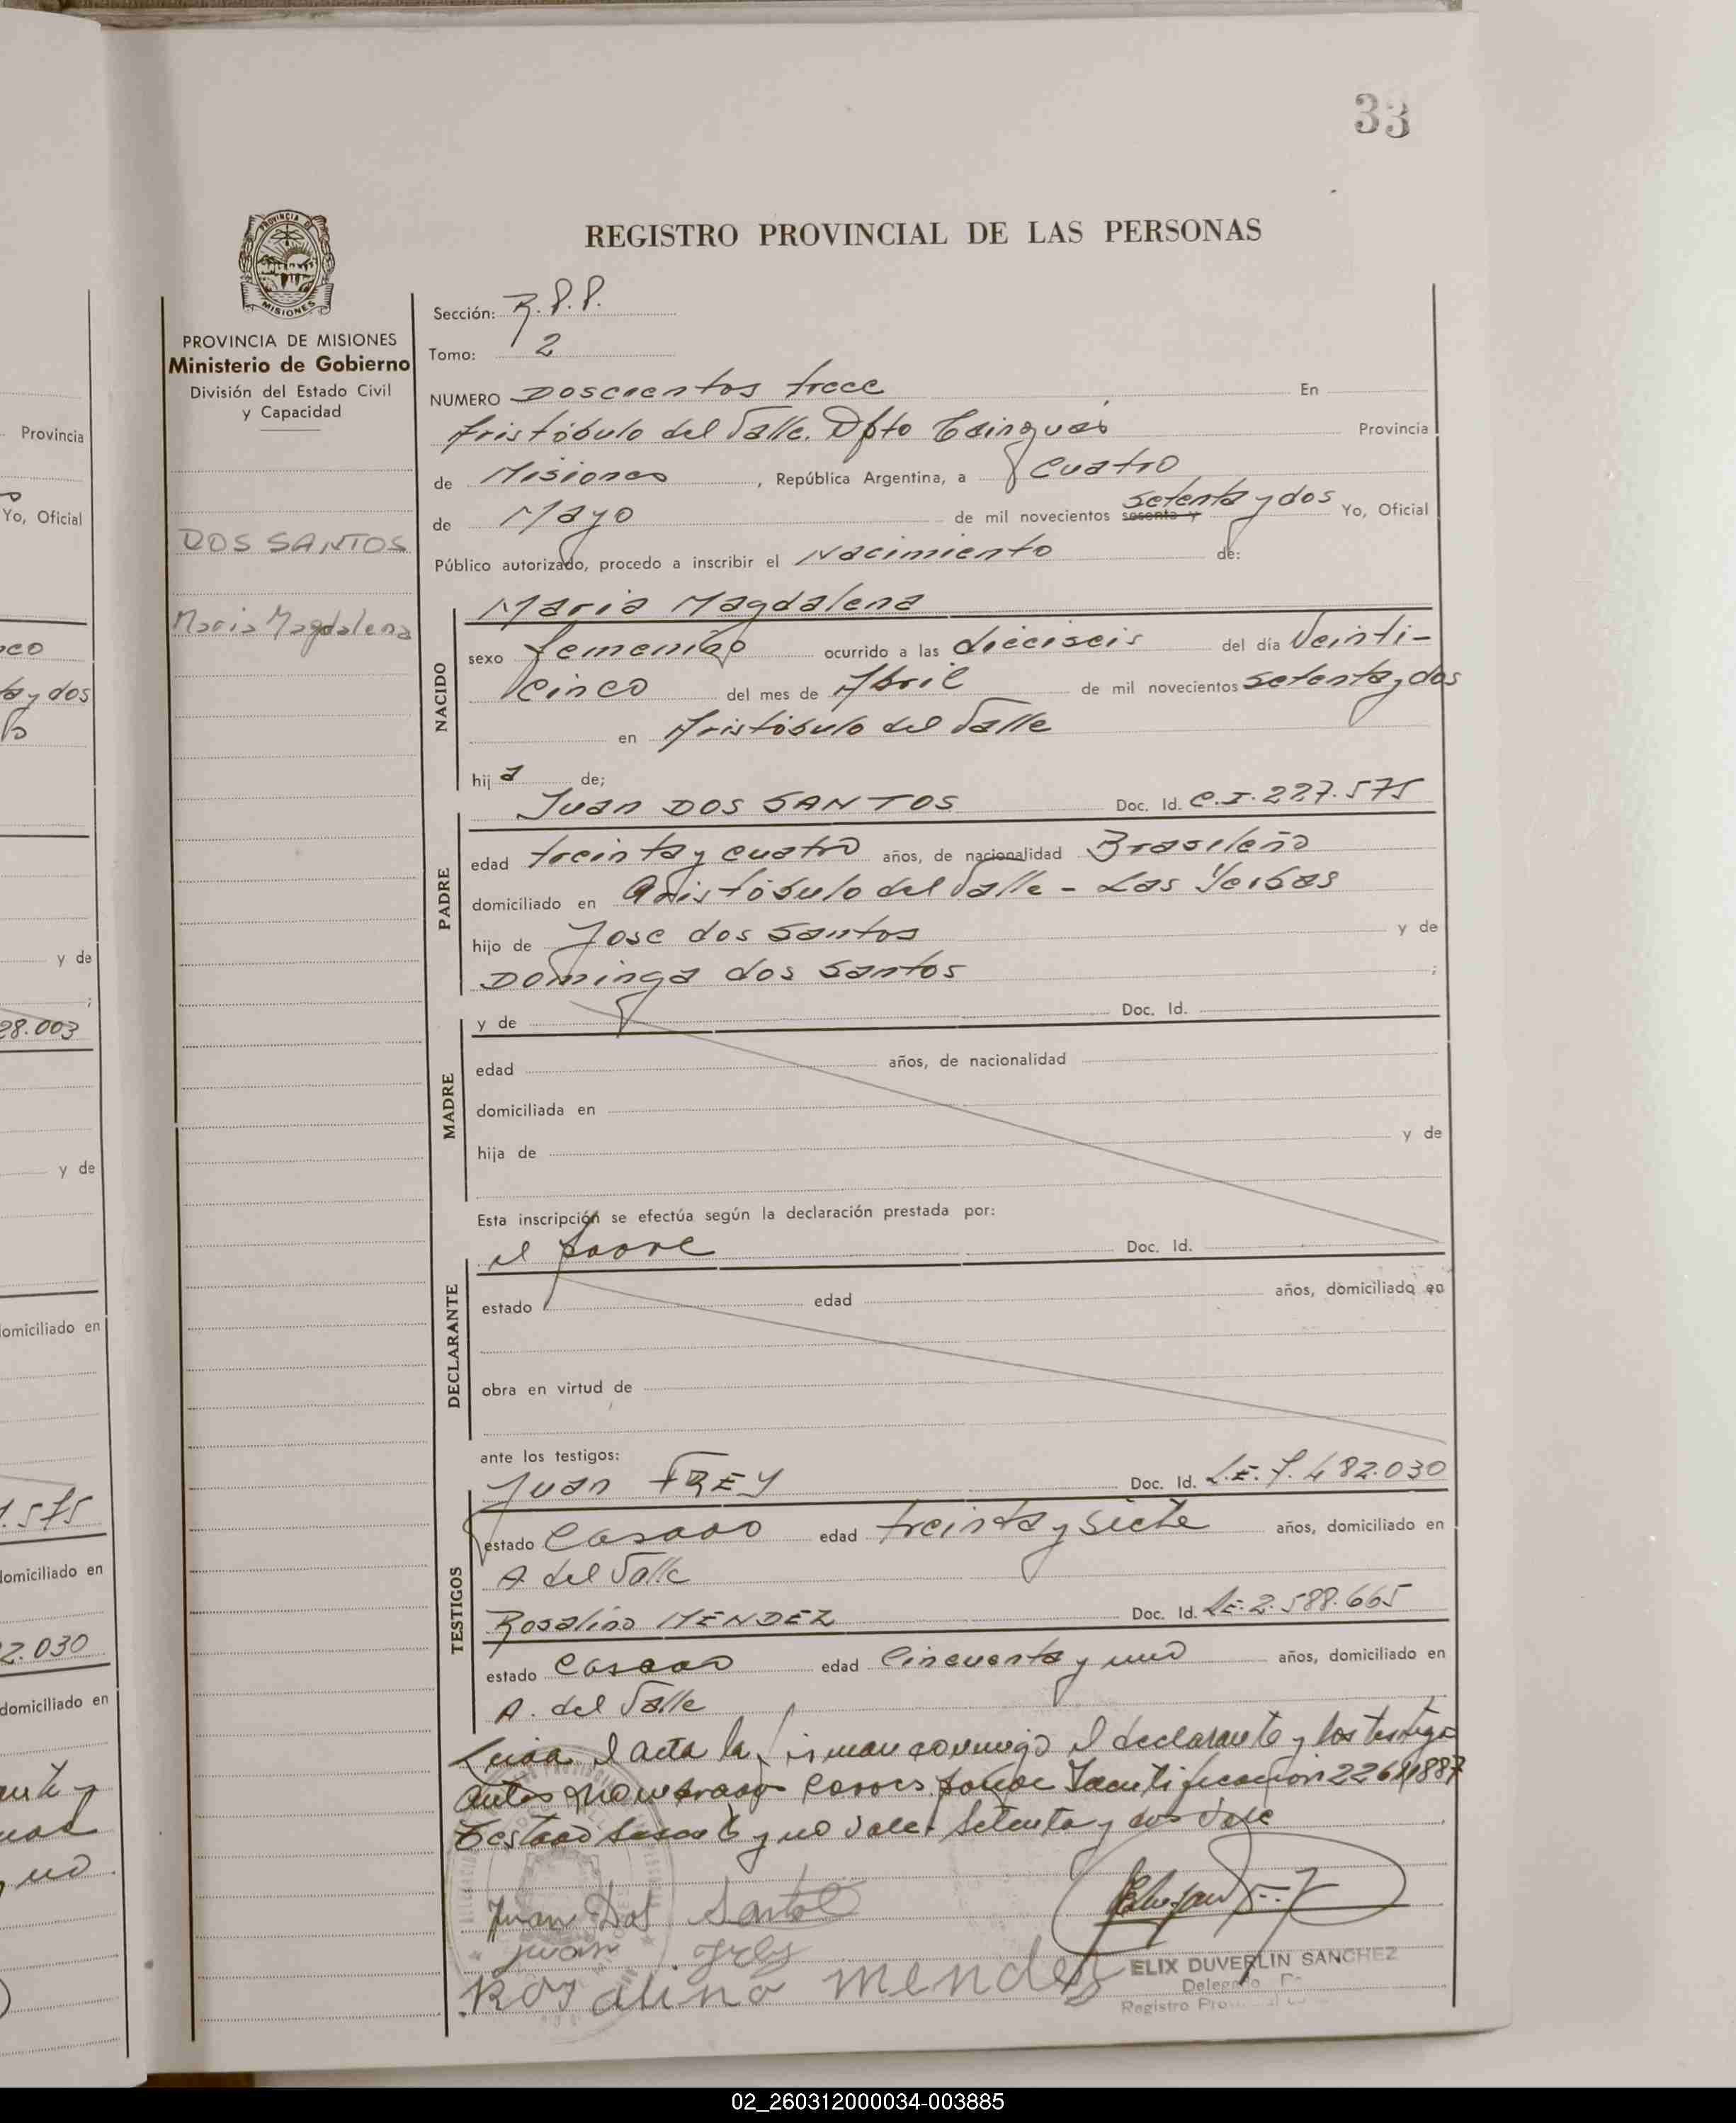 33
REGISTRO PROVINCIAL DE LAS PERSONAS
PROVINCIA DE MISIONES
MISIONES
PROVINCIA DE MISIONES
Ministerio de Gobierno
División del Estado Civil
y Capacidad
DOS SANTOS
Maria Magdalena
Sección: R.P.P.
Tomo: 2
NUMERO Doscientos trece En
Aristóbulo del Valle. Dpto Cainguás Provincia
de Misiones, República Argentina, a cuatro
de Mayo de mil novecientos sesenta y setenta y dos Yo, Oficial
Público autorizado, procedo a inscribir el Nacimiento de:
Maria Magdalena
NACIDO
sexo femenino ocurrido a las dieciseis del día Veinti-
cinco del mes de Abril de mil novecientos setenta y dos
en Aristóbulo del Valle
hija de;
Juan DOS SANTOS Doc. Id. C.I. 227.575
PADRE
edad treinta y cuatro años, de nacionalidad Brasileño
domiciliado en Aristóbulo del Valle - Las Yerbas
hijo de Jose dos Santos y de
Dominga dos Santos ;
y de Doc. Id.
MADRE
edad años, de nacionalidad
domiciliada en
hija de y de
Esta inscripción se efectúa según la declaración prestada por:
el padre Doc. Id.
DECLARANTE
estado edad años, domiciliado en
obra en virtud de
ante los testigos:
Juan FREY Doc. Id. L.E. 7.482.030
TESTIGOS
estado Casado edad treinta y siete años, domiciliado en
A. del Valle
Rosalino MENDEZ Doc. Id. L.E. 2.588.665
estado Casado edad cincuenta y uno años, domiciliado en
A. del Valle
Leída el acta la firman conmigo el declarante y los testigos
antes nombrados Corresponde Identificación 22611887
Testado sesenta y no vale. Setenta y dos vale
Juan Dos Santos
Juan Frey
Rosalino mendez
ELIX DUVERLIN SANCHEZ
Registro
Provincia
Yo, Oficial
nco
ta y dos
y de
;
28.003
y de
domiciliado en
1.575
domiciliado en
2.030
domiciliado en
02_260312000034-003885